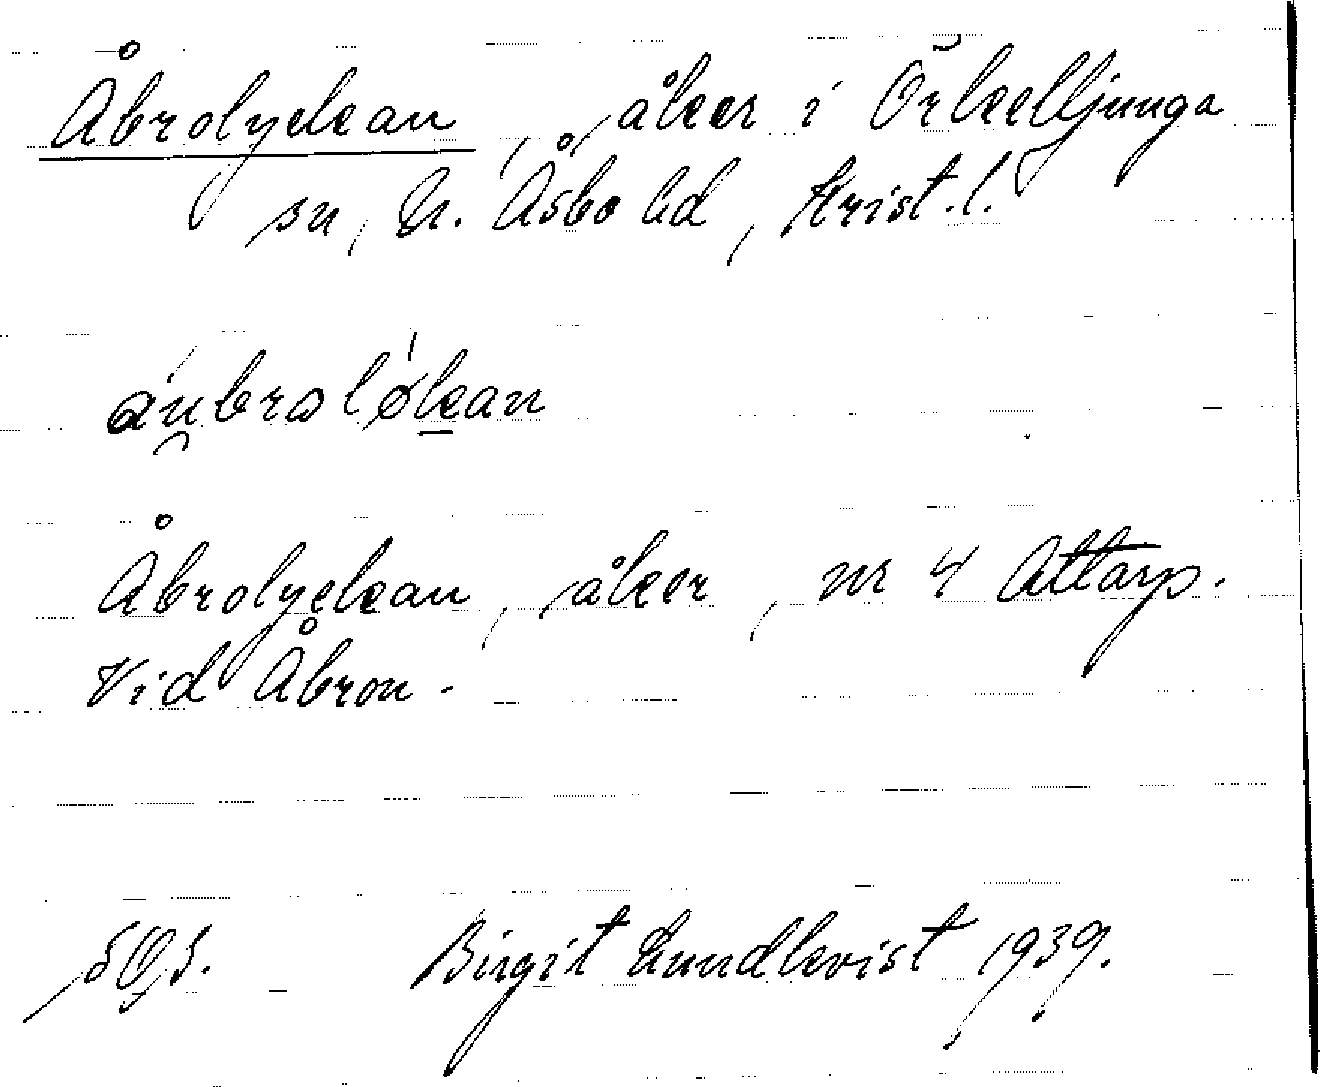 Åbrolyckan, åker i Örkelljunga
sn, N. Åsbo hd, Krist. l.
Åbrolyckan, åker, nr 4 Attarp.
Vid Åbron.
Birgit Lundkvist 1939.